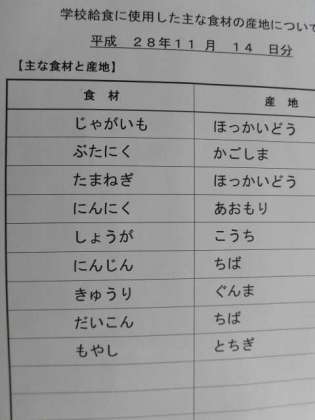 学校給食に使用した主な食材の産地につい
平成 28年11 月 14 日分
【主な食材と産地】
食 材 産 地
じゃがいも ほっかいどう
ぶたにく かごしま
たまねぎ ほっかいどう
にんにく あおもり
しょうが こうち
にんじん ちば
きゅうり ぐんま
だいこん ちば
もやし とちぎ